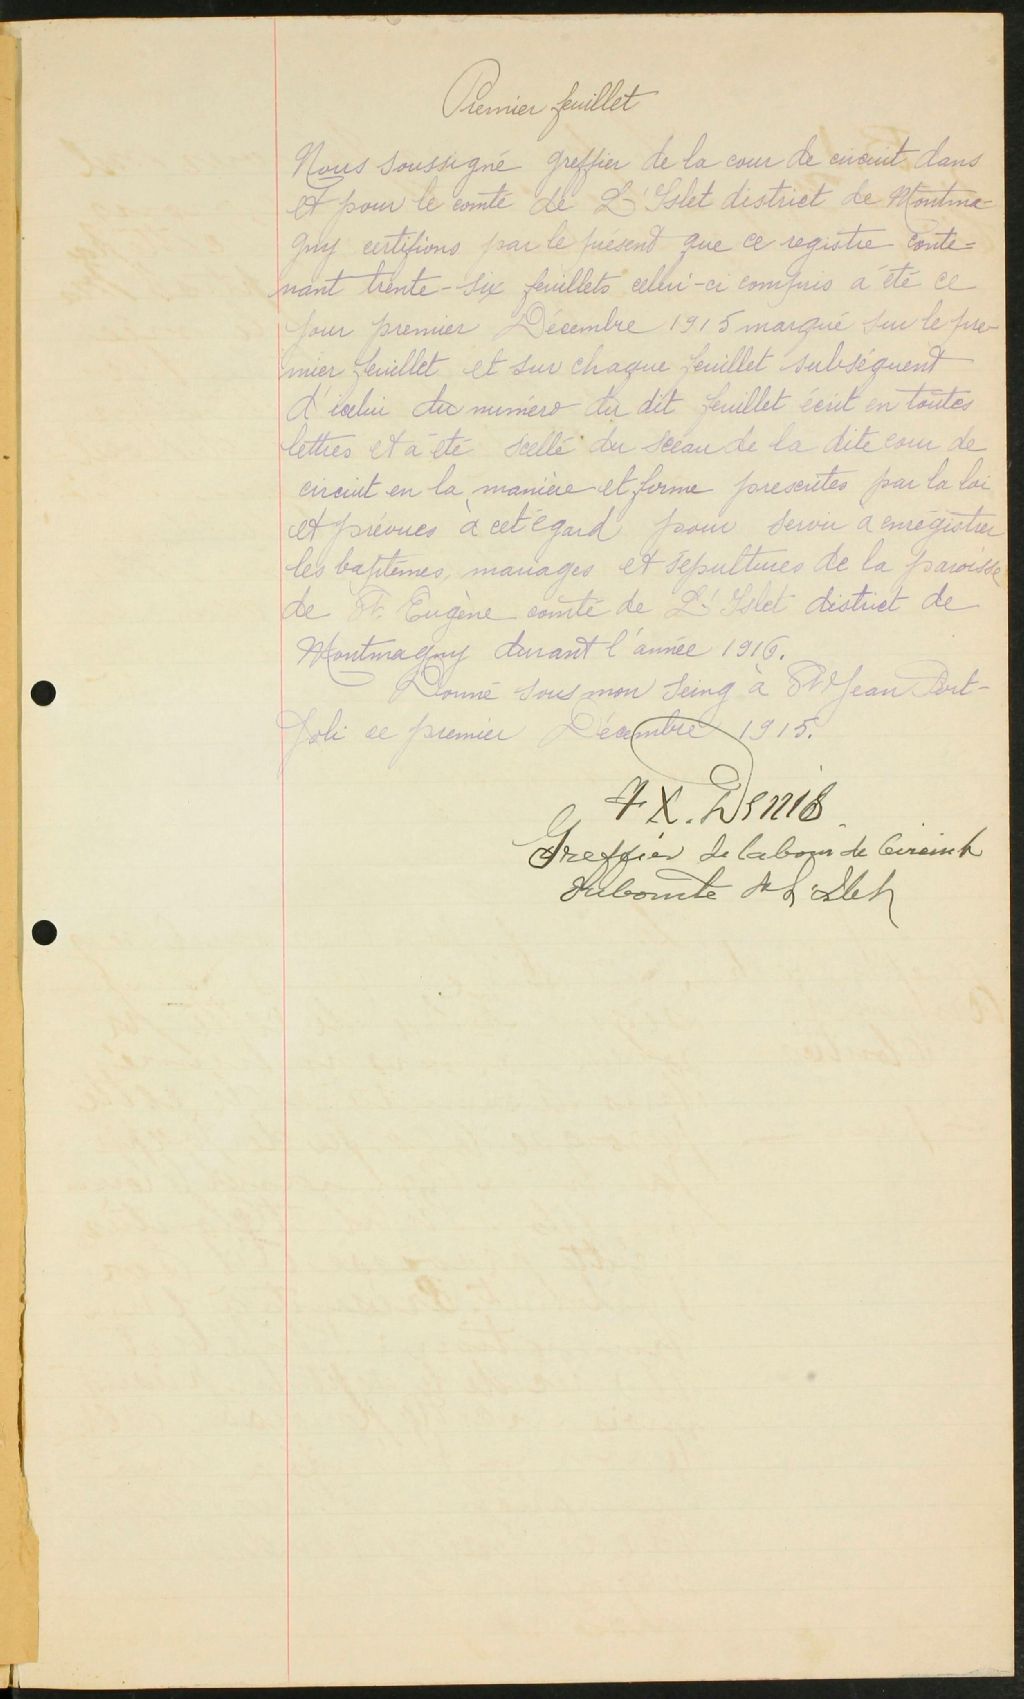 Premier feuillet
Nous soussigné greffier de la cour de circuit dans
et pour le comté de L'Islet district de Montma-
gny certifions par le présent que ce registre conte=
nant trente-six feuillets celui-ci compris a été ce
jour premier Décembre 1915 marqué sur le pre-
mier feuillet et sur chaque feuillet subséquent
d'icelui du numéro du dit feuillet écrit en toutes
lettres et a été scellé du sceau de la dite cour de
circuit en la manière et forme prescrites par la loi
et prévues à cet égard pour servir à enrégistrer
les baptêmes, mariages et sépultures de la paroisse
de St. Eugène comté de L'Islet district de
Montmagny durant l'année 1916.
Donné sous mon seing à St Jean Port-
Joli ce premier Décembre 1915.
F X. Denis
Greffier de la Cour de Circuit
du Comté de L'Islet